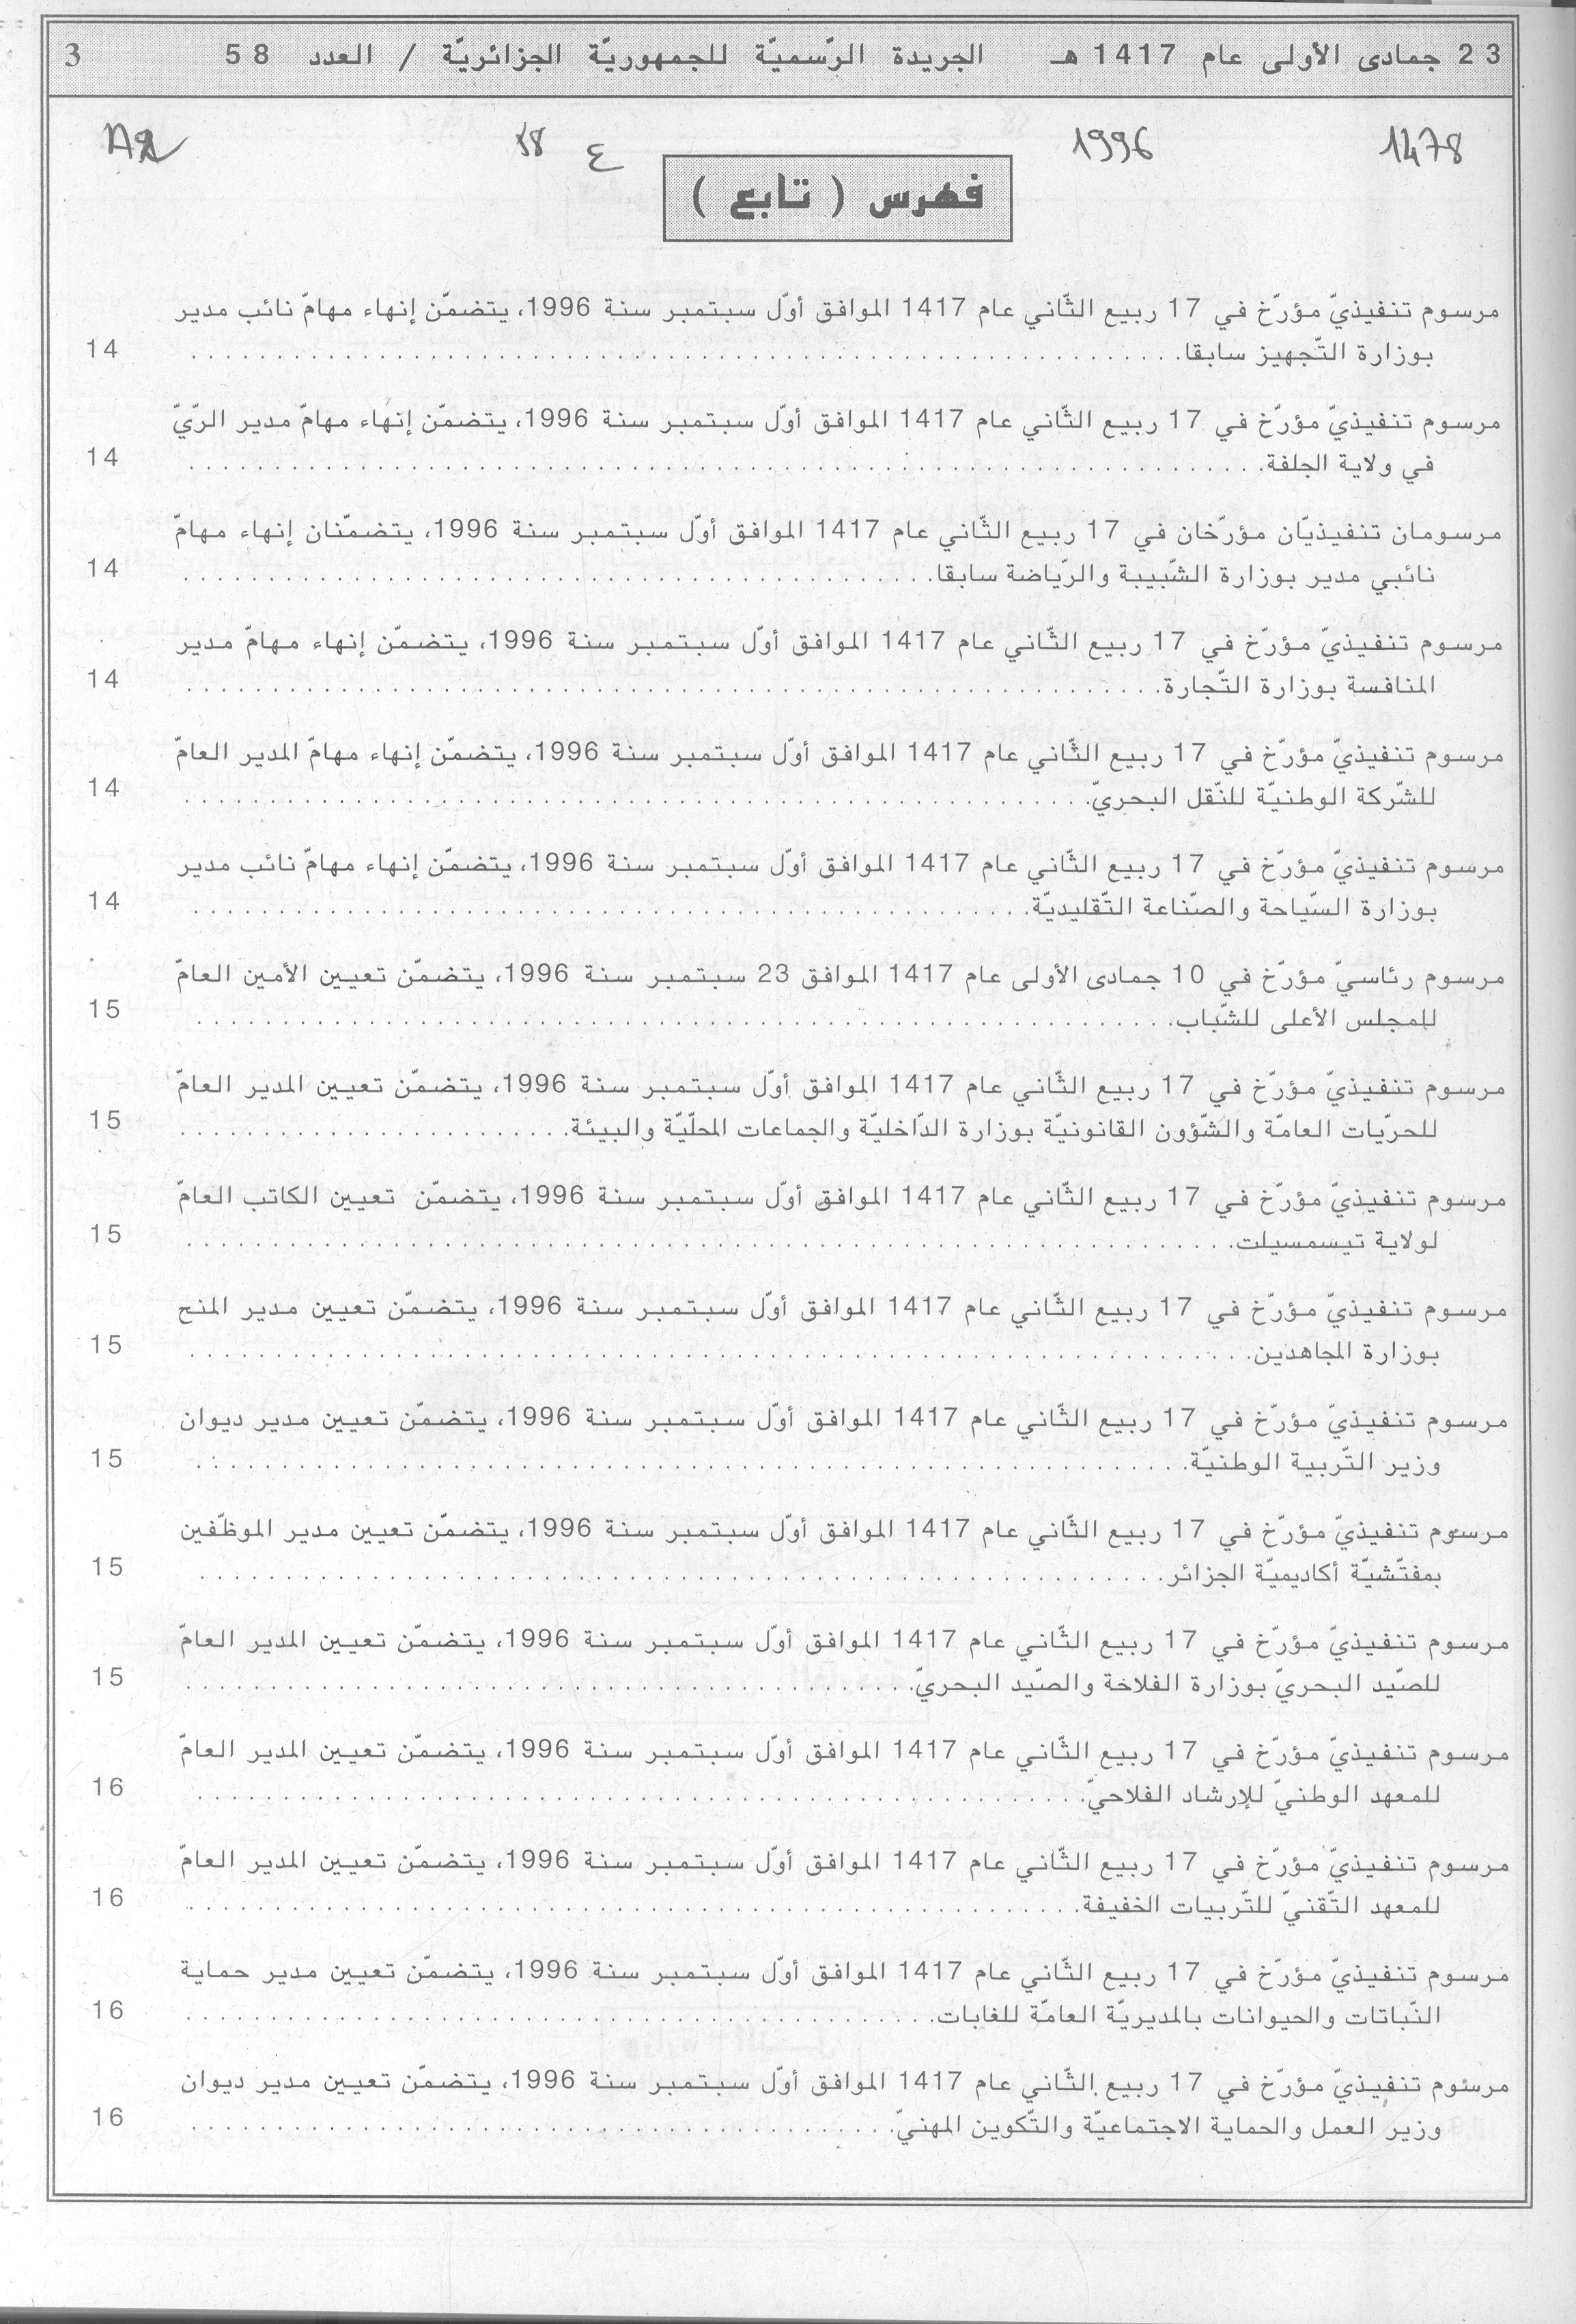 23 جمادى الأولى عام 1417 هـ الجريدة الرّسميّة للجمهوريّة الجزائريّة / العدد 58 3
1478 1996 ع 58
فهرس ( تابع )
مرسوم تنفيذيّ مؤرّخ في 17 ربيع الثّاني عام 1417 الموافق أوّل سبتمبر سنة 1996، يتضمّن إنهاء مهامّ نائب مدير
بوزارة التّجهيز سابقا. 14
مرسوم تنفيذيّ مؤرّخ في 17 ربيع الثّاني عام 1417 الموافق أوّل سبتمبر سنة 1996، يتضمّن إنهاء مهامّ مدير الرّيّ
في ولاية الجلفة. 14
مرسومان تنفيذيّان مؤرّخان في 17 ربيع الثّاني عام 1417 الموافق أوّل سبتمبر سنة 1996، يتضمّنان إنهاء مهامّ
نائبي مدير بوزارة الشّبيبة والرّياضة سابقا. 14
مرسوم تنفيذيّ مؤرّخ في 17 ربيع الثّاني عام 1417 الموافق أوّل سبتمبر سنة 1996، يتضمّن إنهاء مهامّ مدير
المنافسة بوزارة التّجارة. 14
مرسوم تنفيذيّ مؤرّخ في 17 ربيع الثّاني عام 1417 الموافق أوّل سبتمبر سنة 1996، يتضمّن إنهاء مهامّ المدير العامّ
للشّركة الوطنيّة للنّقل البحريّ. 14
مرسوم تنفيذيّ مؤرّخ في 17 ربيع الثّاني عام 1417 الموافق أوّل سبتمبر سنة 1996، يتضمّن إنهاء مهامّ نائب مدير
بوزارة السّياحة والصّناعة التّقليديّة. 14
مرسوم رئاسيّ مؤرّخ في 10 جمادى الأولى عام 1417 الموافق 23 سبتمبر سنة 1996، يتضمّن تعيين الأمين العامّ
للمجلس الأعلى للشّباب. 15
مرسوم تنفيذيّ مؤرّخ في 17 ربيع الثّاني عام 1417 الموافق أوّل سبتمبر سنة 1996، يتضمّن تعيين المدير العامّ
للحرّيّات العامّة والشّؤون القانونيّة بوزارة الدّاخليّة والجماعات المحلّيّة والبيئة. 15
مرسوم تنفيذيّ مؤرّخ في 17 ربيع الثّاني عام 1417 الموافق أوّل سبتمبر سنة 1996، يتضمّن تعيين الكاتب العامّ
لولاية تيسمسيلت. 15
مرسوم تنفيذيّ مؤرّخ في 17 ربيع الثّاني عام 1417 الموافق أوّل سبتمبر سنة 1996، يتضمّن تعيين مدير المنح
بوزارة المجاهدين. 15
مرسوم تنفيذيّ مؤرّخ في 17 ربيع الثّاني عام 1417 الموافق أوّل سبتمبر سنة 1996، يتضمّن تعيين مدير ديوان
وزير التّربية الوطنيّة. 15
مرسوم تنفيذيّ مؤرّخ في 17 ربيع الثّاني عام 1417 الموافق أوّل سبتمبر سنة 1996، يتضمّن تعيين مدير الموظّفين
بمفتّشيّة أكاديميّة الجزائر. 15
مرسوم تنفيذيّ مؤرّخ في 17 ربيع الثّاني عام 1417 الموافق أوّل سبتمبر سنة 1996، يتضمّن تعيين المدير العامّ
للصّيد البحريّ بوزارة الفلاحة والصّيد البحريّ. 15
مرسوم تنفيذيّ مؤرّخ في 17 ربيع الثّاني عام 1417 الموافق أوّل سبتمبر سنة 1996، يتضمّن تعيين المدير العامّ
للمعهد الوطنيّ للإرشاد الفلاحيّ. 16
مرسوم تنفيذيّ مؤرّخ في 17 ربيع الثّاني عام 1417 الموافق أوّل سبتمبر سنة 1996، يتضمّن تعيين المدير العامّ
للمعهد التّقنيّ للتّربيات الخفيفة. 16
مرسوم تنفيذيّ مؤرّخ في 17 ربيع الثّاني عام 1417 الموافق أوّل سبتمبر سنة 1996، يتضمّن تعيين مدير حماية
النّباتات والحيوانات بالمديريّة العامّة للغابات. 16
مرسوم تنفيذيّ مؤرّخ في 17 ربيع الثّاني عام 1417 الموافق أوّل سبتمبر سنة 1996، يتضمّن تعيين مدير ديوان
وزير العمل والحماية الاجتماعيّة والتّكوين المهنيّ. 16